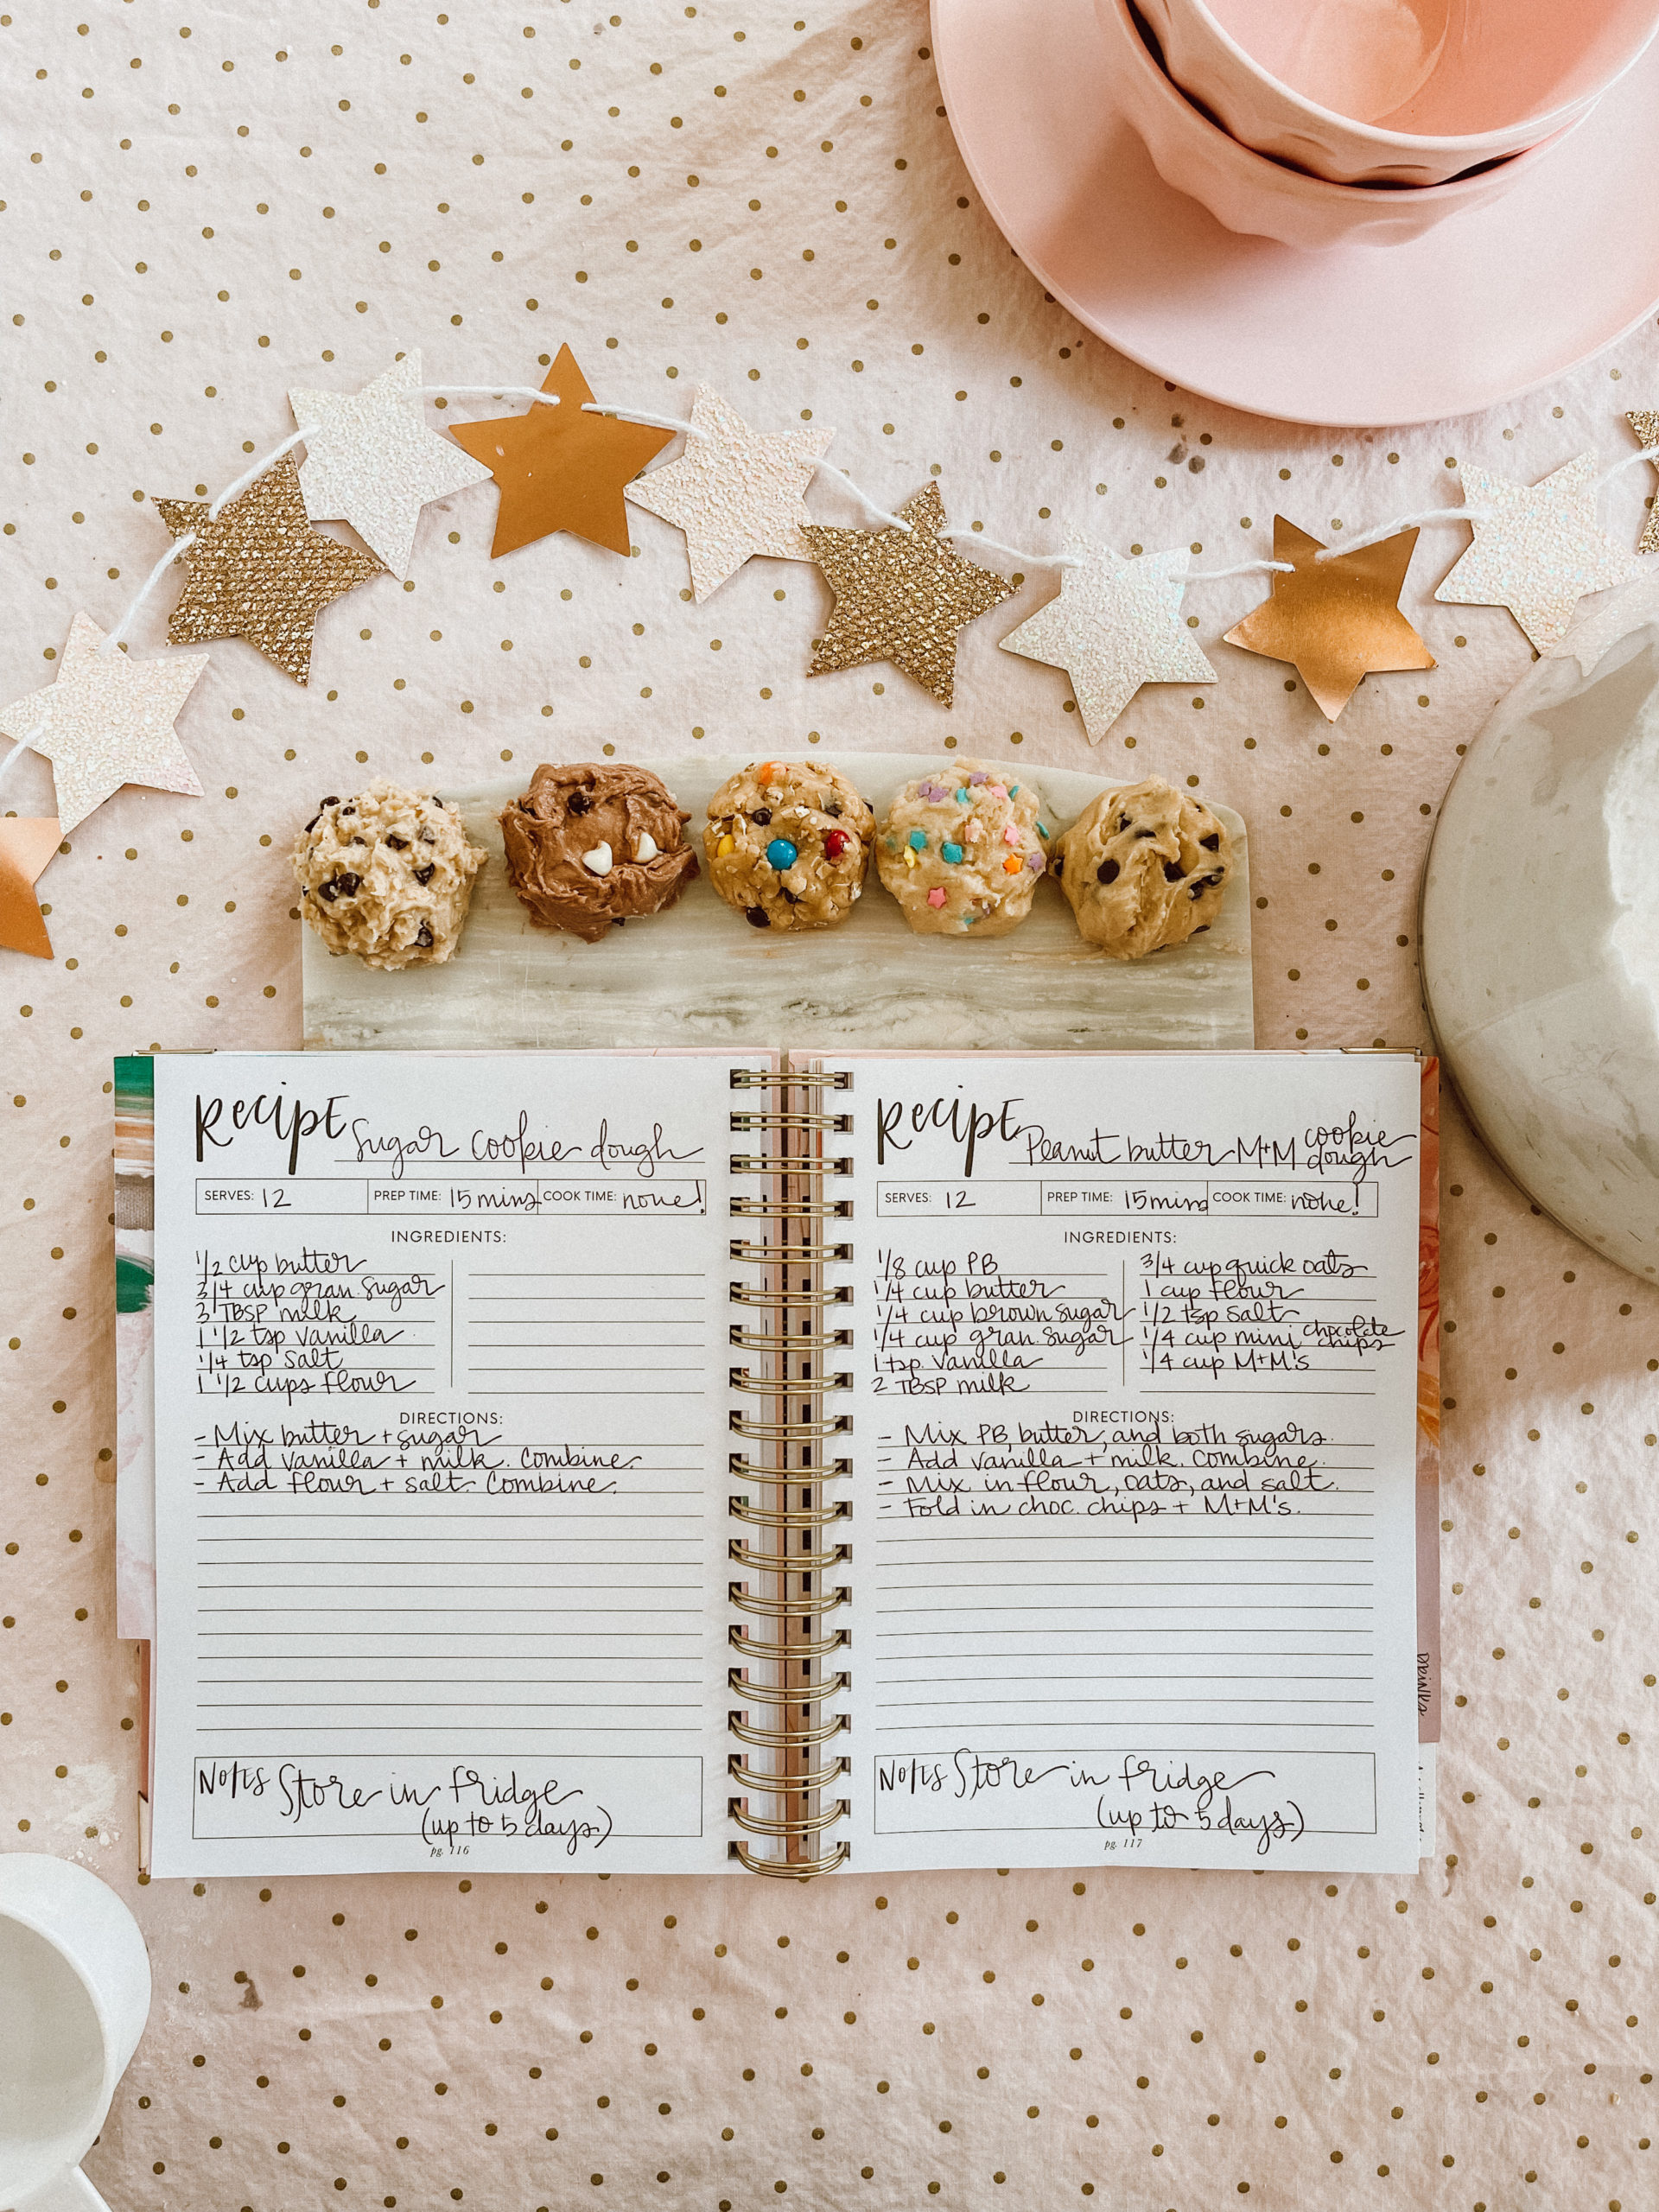 Recipe Sugar cookie dough
SERVES: 12 PREP TIME: 15 mins COOK TIME: none!
INGREDIENTS:
1/2 cup butter
3/4 cup gran. sugar
3 TBSP milk
1 1/2 tsp vanilla
1/4 tsp salt
1 1/2 cups flour
DIRECTIONS:
- Mix butter + sugar
- Add vanilla + milk. Combine.
- Add flour + salt. Combine.
NOTES Store in fridge
(up to 5 days)
pg. 116
Recipe Peanut butter M+M cookie dough
SERVES: 12 PREP TIME: 15 mins COOK TIME: none!
INGREDIENTS:
1/8 cup PB
1/4 cup butter
1/4 cup brown sugar
1/4 cup gran. sugar
1 tsp. vanilla
2 TBSP milk
3/4 cup quick oats
1 cup flour
1/2 tsp salt
1/4 cup mini chocolate chips
1/4 cup M+M's
DIRECTIONS:
- Mix PB, butter, and both sugars.
- Add vanilla + milk. Combine.
- Mix in flour, oats, and salt.
- Fold in choc. chips + M+M's.
NOTES Store in fridge
(up to 5 days)
pg. 117
DRINKS